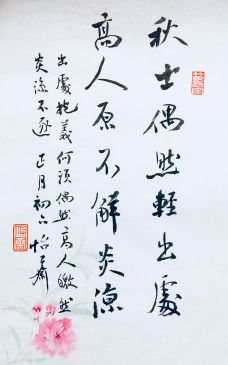 秋士偶然輕出處
高人原不解炎涼
出處抱義何須偶然高人皦然
炎涼不逐 正月初六怡